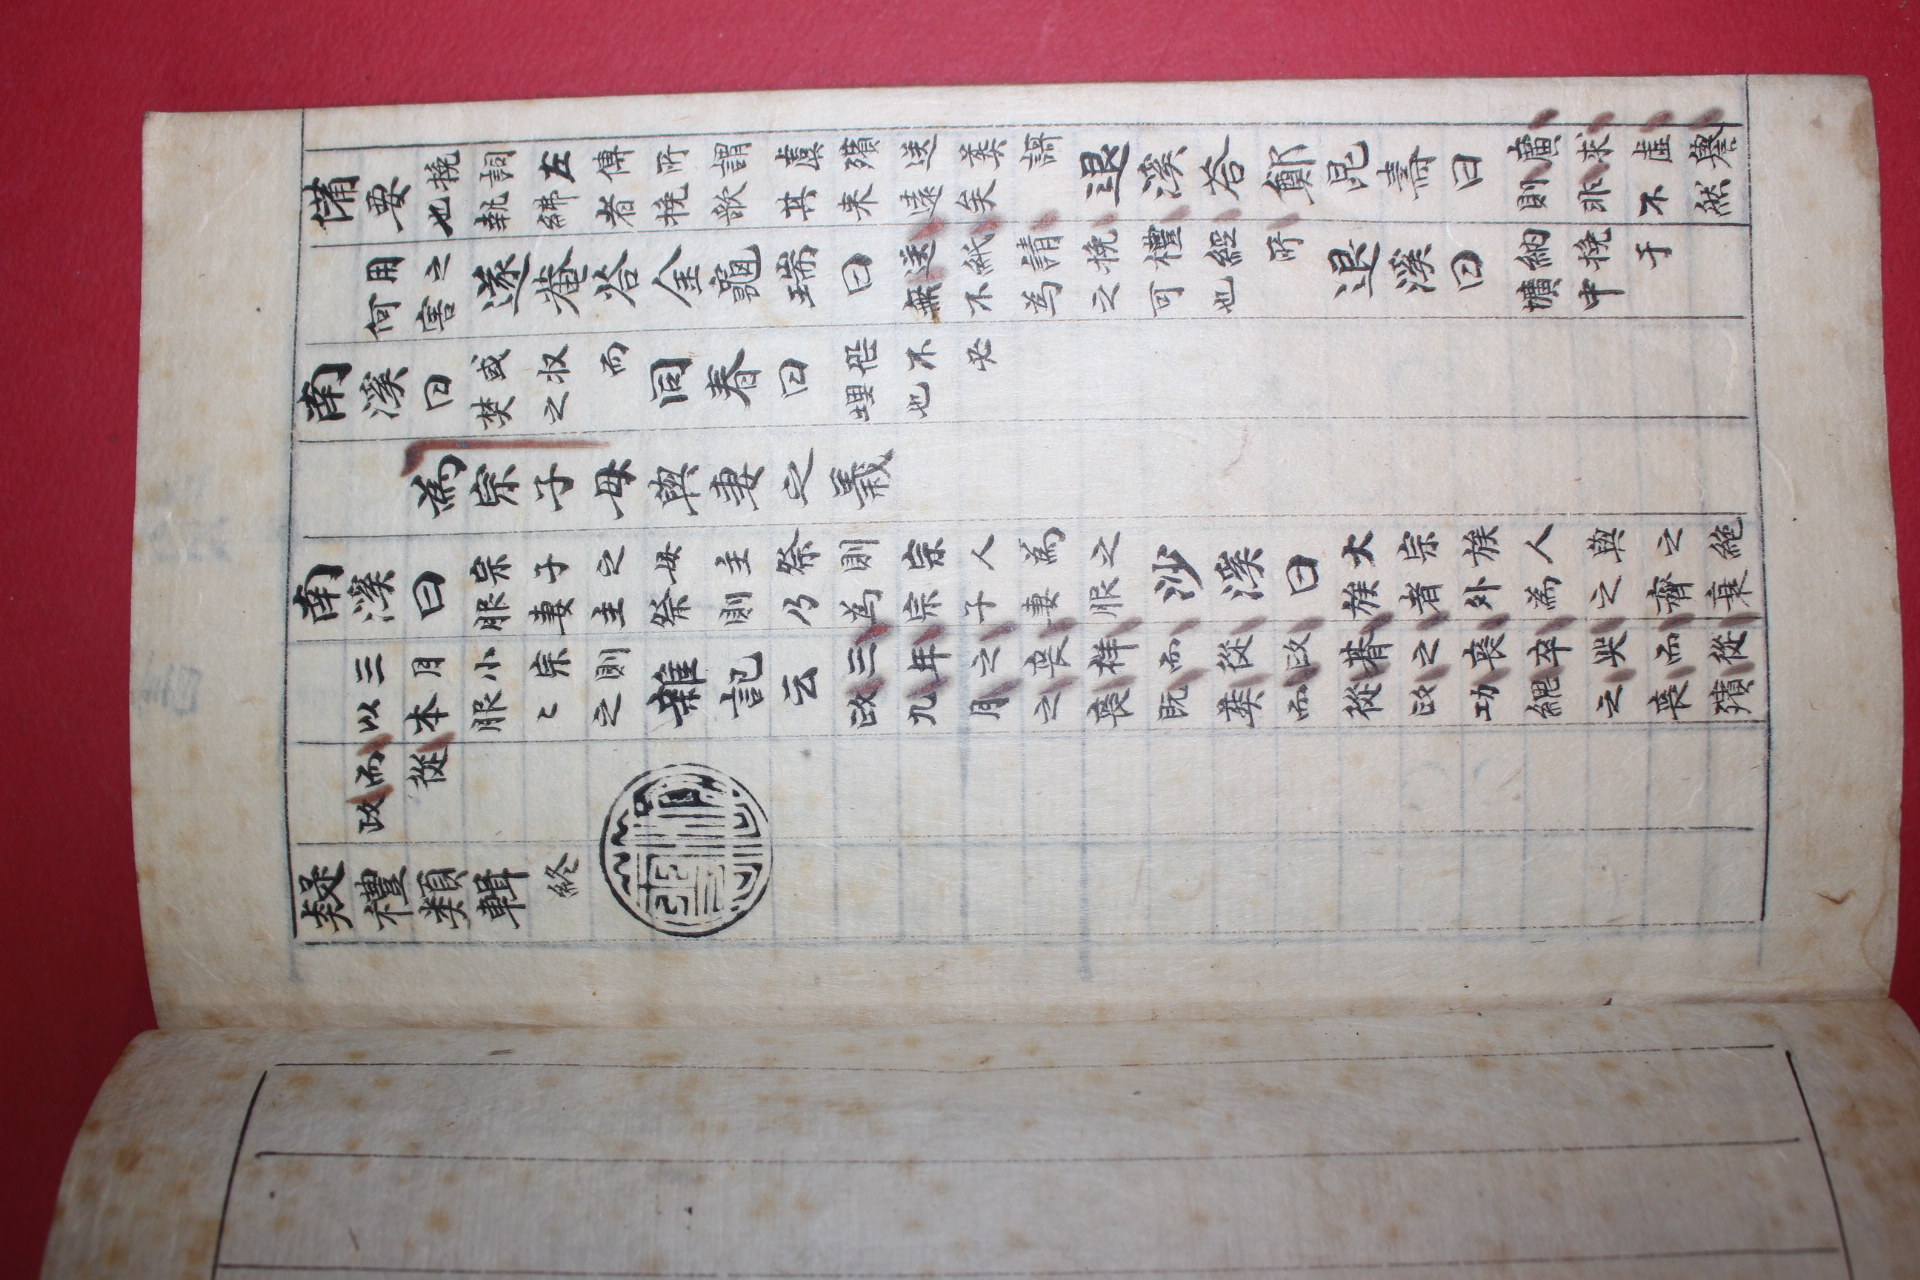 備要挽詞左傳所謂虞殯送葬謌也執紼者挽歌其来遠矣退溪答鄭昆壽曰廣求虛譽則非不然
用之何害遂菴答金龜瑞曰送紙請挽禮經所無不為之可也退溪曰納挽于壙中
南溪曰或收而焚之同春曰恐不必埋也
為宗子母與妻之義
南溪曰宗子之母主祭則宗人為之服妻主祭則乃為宗子妻服沙溪曰大宗族人與之絶族者外為之齊衰
三月小宗則以本服〻之雜記云三年之喪祥而從政朞之喪卒哭而從政九月之喪既葬而從政功緦之喪殯
而從政
疑禮類輯終